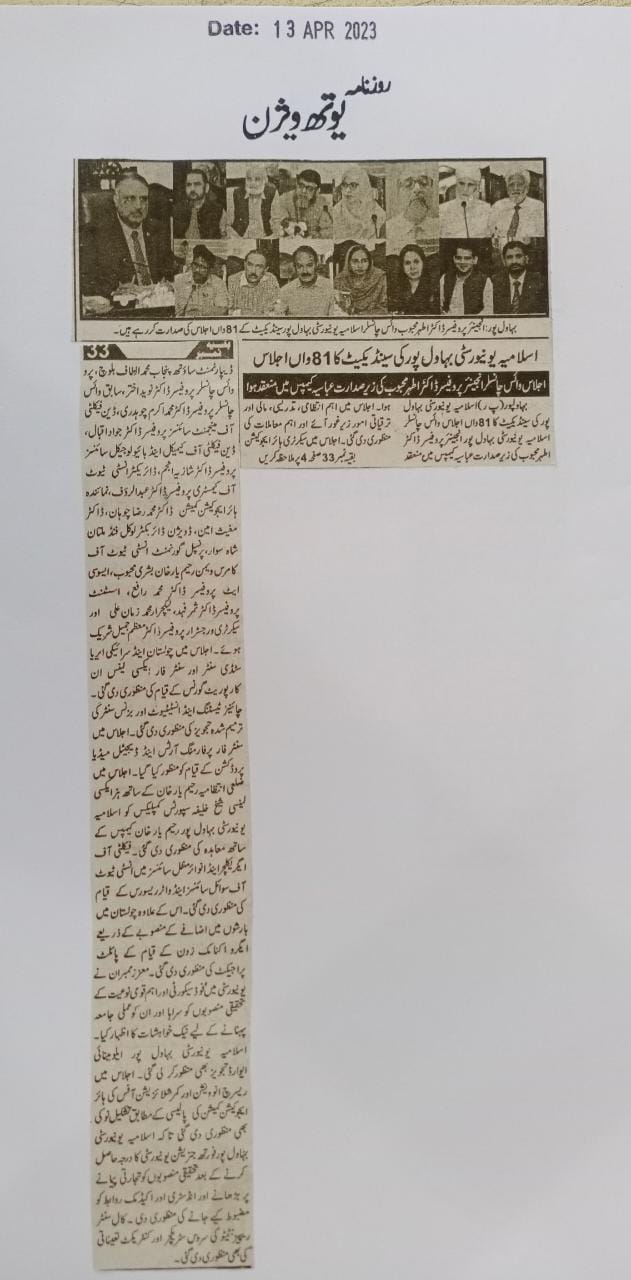 Date: 13 APR 2023
روزنامہ
یوتھ ویژن
بہاول پور: انجینئر پروفیسر ڈاکٹر اطہر محبوب وائس چانسلر اسلامیہ یونیورسٹی بہاول پور سینڈیکیٹ کے 81 واں اجلاس کی صدارت کر رہے ہیں۔
اسلامیہ یونیورسٹی بہاول پور کی سینڈیکیٹ کا 81 واں اجلاس
اجلاس وائس چانسلر انجینئر پروفیسر ڈاکٹر اطہر محبوب کی زیر صدارت عباسیہ کیمپس میں منعقد ہوا
بہاولپور (پ ر) اسلامیہ یونیورسٹی بہاول
پور کی سینڈیکیٹ کا 81 واں اجلاس وائس چانسلر
اسلامیہ یونیورسٹی بہاول پور انجینئر پروفیسر ڈاکٹر
اطہر محبوب کی زیر صدارت عباسیہ کیمپس میں منعقد
ہوا۔ اجلاس میں اہم انتظامی، تدریسی، مالی اور
ترقیاتی امور زیر غور آئے اور اہم معاملات کی
منظوری دی گئی۔ اجلاس میں سیکرٹری ہائر ایجوکیشن
بقیہ نمبر 33 صفحہ 4 پر ملاحظہ کریں
بقیہ نمبر 33
ڈیپارٹمنٹ ساؤتھ پنجاب محمد الطاف بلوچ، پرو
وائس چانسلر پروفیسر ڈاکٹر نوید اختر، سابق وائس
چانسلر پروفیسر ڈاکٹر محمد اکرم چوہدری، ڈین فیکلٹی
آف مینجمنٹ سائنسز پروفیسر ڈاکٹر جواد اقبال،
ڈین فیکلٹی آف کیمیکل اینڈ بائیولوجیکل سائنسز
پروفیسر ڈاکٹر شازیہ انجم، ڈائریکٹر انسٹی ٹیوٹ
آف کیمسٹری پروفیسر ڈاکٹر عبدالرؤف، نمائندہ
ہائر ایجوکیشن کمیشن ڈاکٹر محمد رضا چوہان، ڈاکٹر
مغیث امین، ڈویژن ڈائریکٹر لوکل فنڈ ملتان
شاہ سوار، پرنسپل گورنمنٹ انسٹی ٹیوٹ آف
کامرس ویمن رحیم یار خان بشریٰ محبوب، ایسوسی
ایٹ پروفیسر ڈاکٹر محمد رافع، اسسٹنٹ
پروفیسر ڈاکٹر ثمر فہد، لیکچرار محمد زمان علی اور
سیکرٹری و رجسٹرار پروفیسر ڈاکٹر معظم جمیل شریک
ہوئے۔ اجلاس میں چولستان اینڈ سرائیکی ایریا
سٹڈی سنٹر اور سنٹر فار ایکسی لینس ان
کارپوریٹ گورننس کے قیام کی منظوری دی گئی۔
چائنیز ٹیسٹنگ اینڈ انسٹیٹیوٹ اور بزنس سنٹر کی
ترمیم شدہ تجویز کی منظوری دی گئی۔ اجلاس میں
سنٹر فار پرفارمنگ آرٹس اینڈ ڈیجیٹل میڈیا
پروڈکشن کے قیام کو منظور کیا گیا۔ اجلاس میں
ضلعی انتظامیہ رحیم یار خان کے ساتھ ہز ایکسی
لینسی شیخ خلیفہ سپورٹس کمپلیکس کو اسلامیہ
یونیورسٹی بہاول پور رحیم یار خان کیمپس کے
ساتھ معاہدہ کی منظوری دی گئی۔ فیکلٹی آف
ایگریکلچر اینڈ انوائرمنٹل سائنسز میں انسٹی ٹیوٹ
آف سوائل سائنسز اینڈ واٹر ریسورس کے قیام
کی منظوری دی گئی۔ اس کے علاوہ چولستان میں
بارشوں میں اضافے کے منصوبے کے ذریعے
ایگرو اکنامک زون کے قیام کے پائلٹ
پراجیکٹ کی منظوری دی گئی۔ معزز ممبران نے
یونیورسٹی میں فوڈ سیکورٹی اور اہم قومی نوعیت کے
تحقیقی منصوبوں کو سراہا اور ان کو عملی جامہ
پہنانے کے لیے نیک خواہشات کا اظہار کیا۔
اسلامیہ یونیورسٹی بہاول پور ایلومینائی
ایوارڈ تجویز بھی منظور کر لی گئی۔ اجلاس میں
ریسرچ انوویشن اور کمرشلائزیشن آفس کی ہائر
ایجوکیشن کمیشن کی پالیسی کے مطابق تشکیل نو کی
بھی منظوری دی گئی تاکہ اسلامیہ یونیورسٹی
بہاول پور فورتھ جنریشن یونیورسٹی کا درجہ حاصل
کرنے کے بعد تحقیقی منصوبوں کو تجارتی پیمانے
پر بڑھانے اور انڈسٹری اور اکیڈمک روابط کو
مضبوط کیے جانے کی منظوری دی۔ کال سنٹر
ریپریزنٹیٹو کی سروس سٹرکچر اور کنٹریکٹ تعیناتی
کی بھی منظوری دی گئی۔